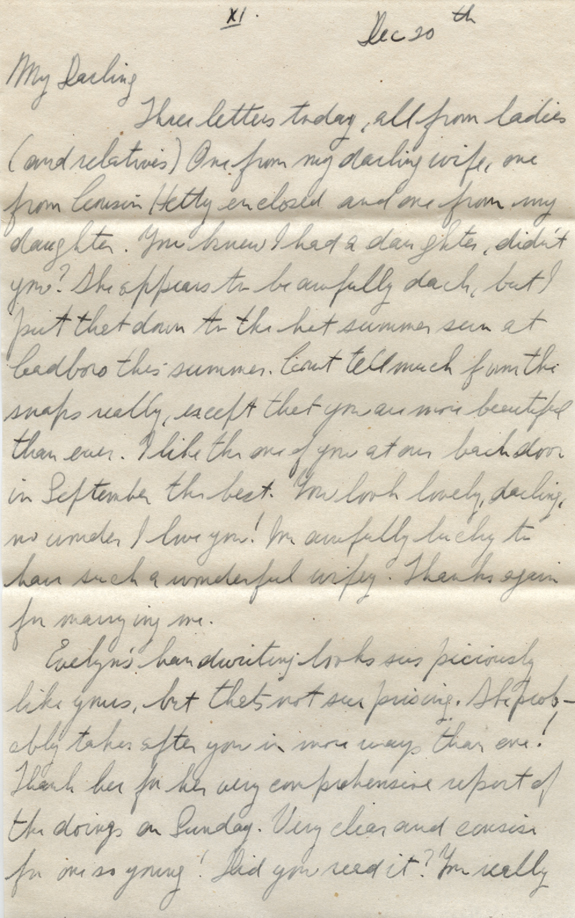 XI.
Dec 20th
My Darling
Three letters today, all from ladies
(and relatives) One from my darling wife, one
from Cousin Hetty enclosed and one from my
daughter. You knew I had a daughter, didn't
you? She appears to be awfully dark, but I
put that down to the hot summer sun at
this summer. Can't tell much from the
snaps really, except that you are more beautiful
than ever. I like the one of you at our back door
in September the best. You look lovely, darling,
no wonder I love you! I'm awfully lucky to
have such a wonderful wifey. Thanks again
for marrying me.
Evelyn's handwriting looks suspiciously
like yours, but that's not surprising. She prob-
ably takes after you in more ways than one!
Thank her for her very comprehensive report of
the doings on Sunday. Very clear and concise
for one so young! Did you read it? You really